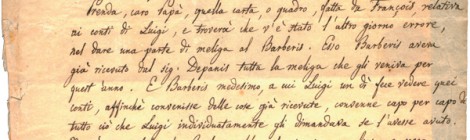 Prenda, caro Papà, quella carta, o quadro, fatta da François relativa
ai conti di Luigi, e troverà che v'è stato l'altro giorno errore,
nel dare una parte di meliga al Barberis. Esso Barberis aveva
già ricevuto dal sig. Depanis tutta la meliga che gli veniva per
quest'anno. E Barberis medesimo, a cui Luigi un dì fece vedere quei
conti, affinchè convenisse delle cose già ricevute, convenne capo per capo di
tutto ciò che Luigi individuatamente gli dimandava se l'avesse avuto.